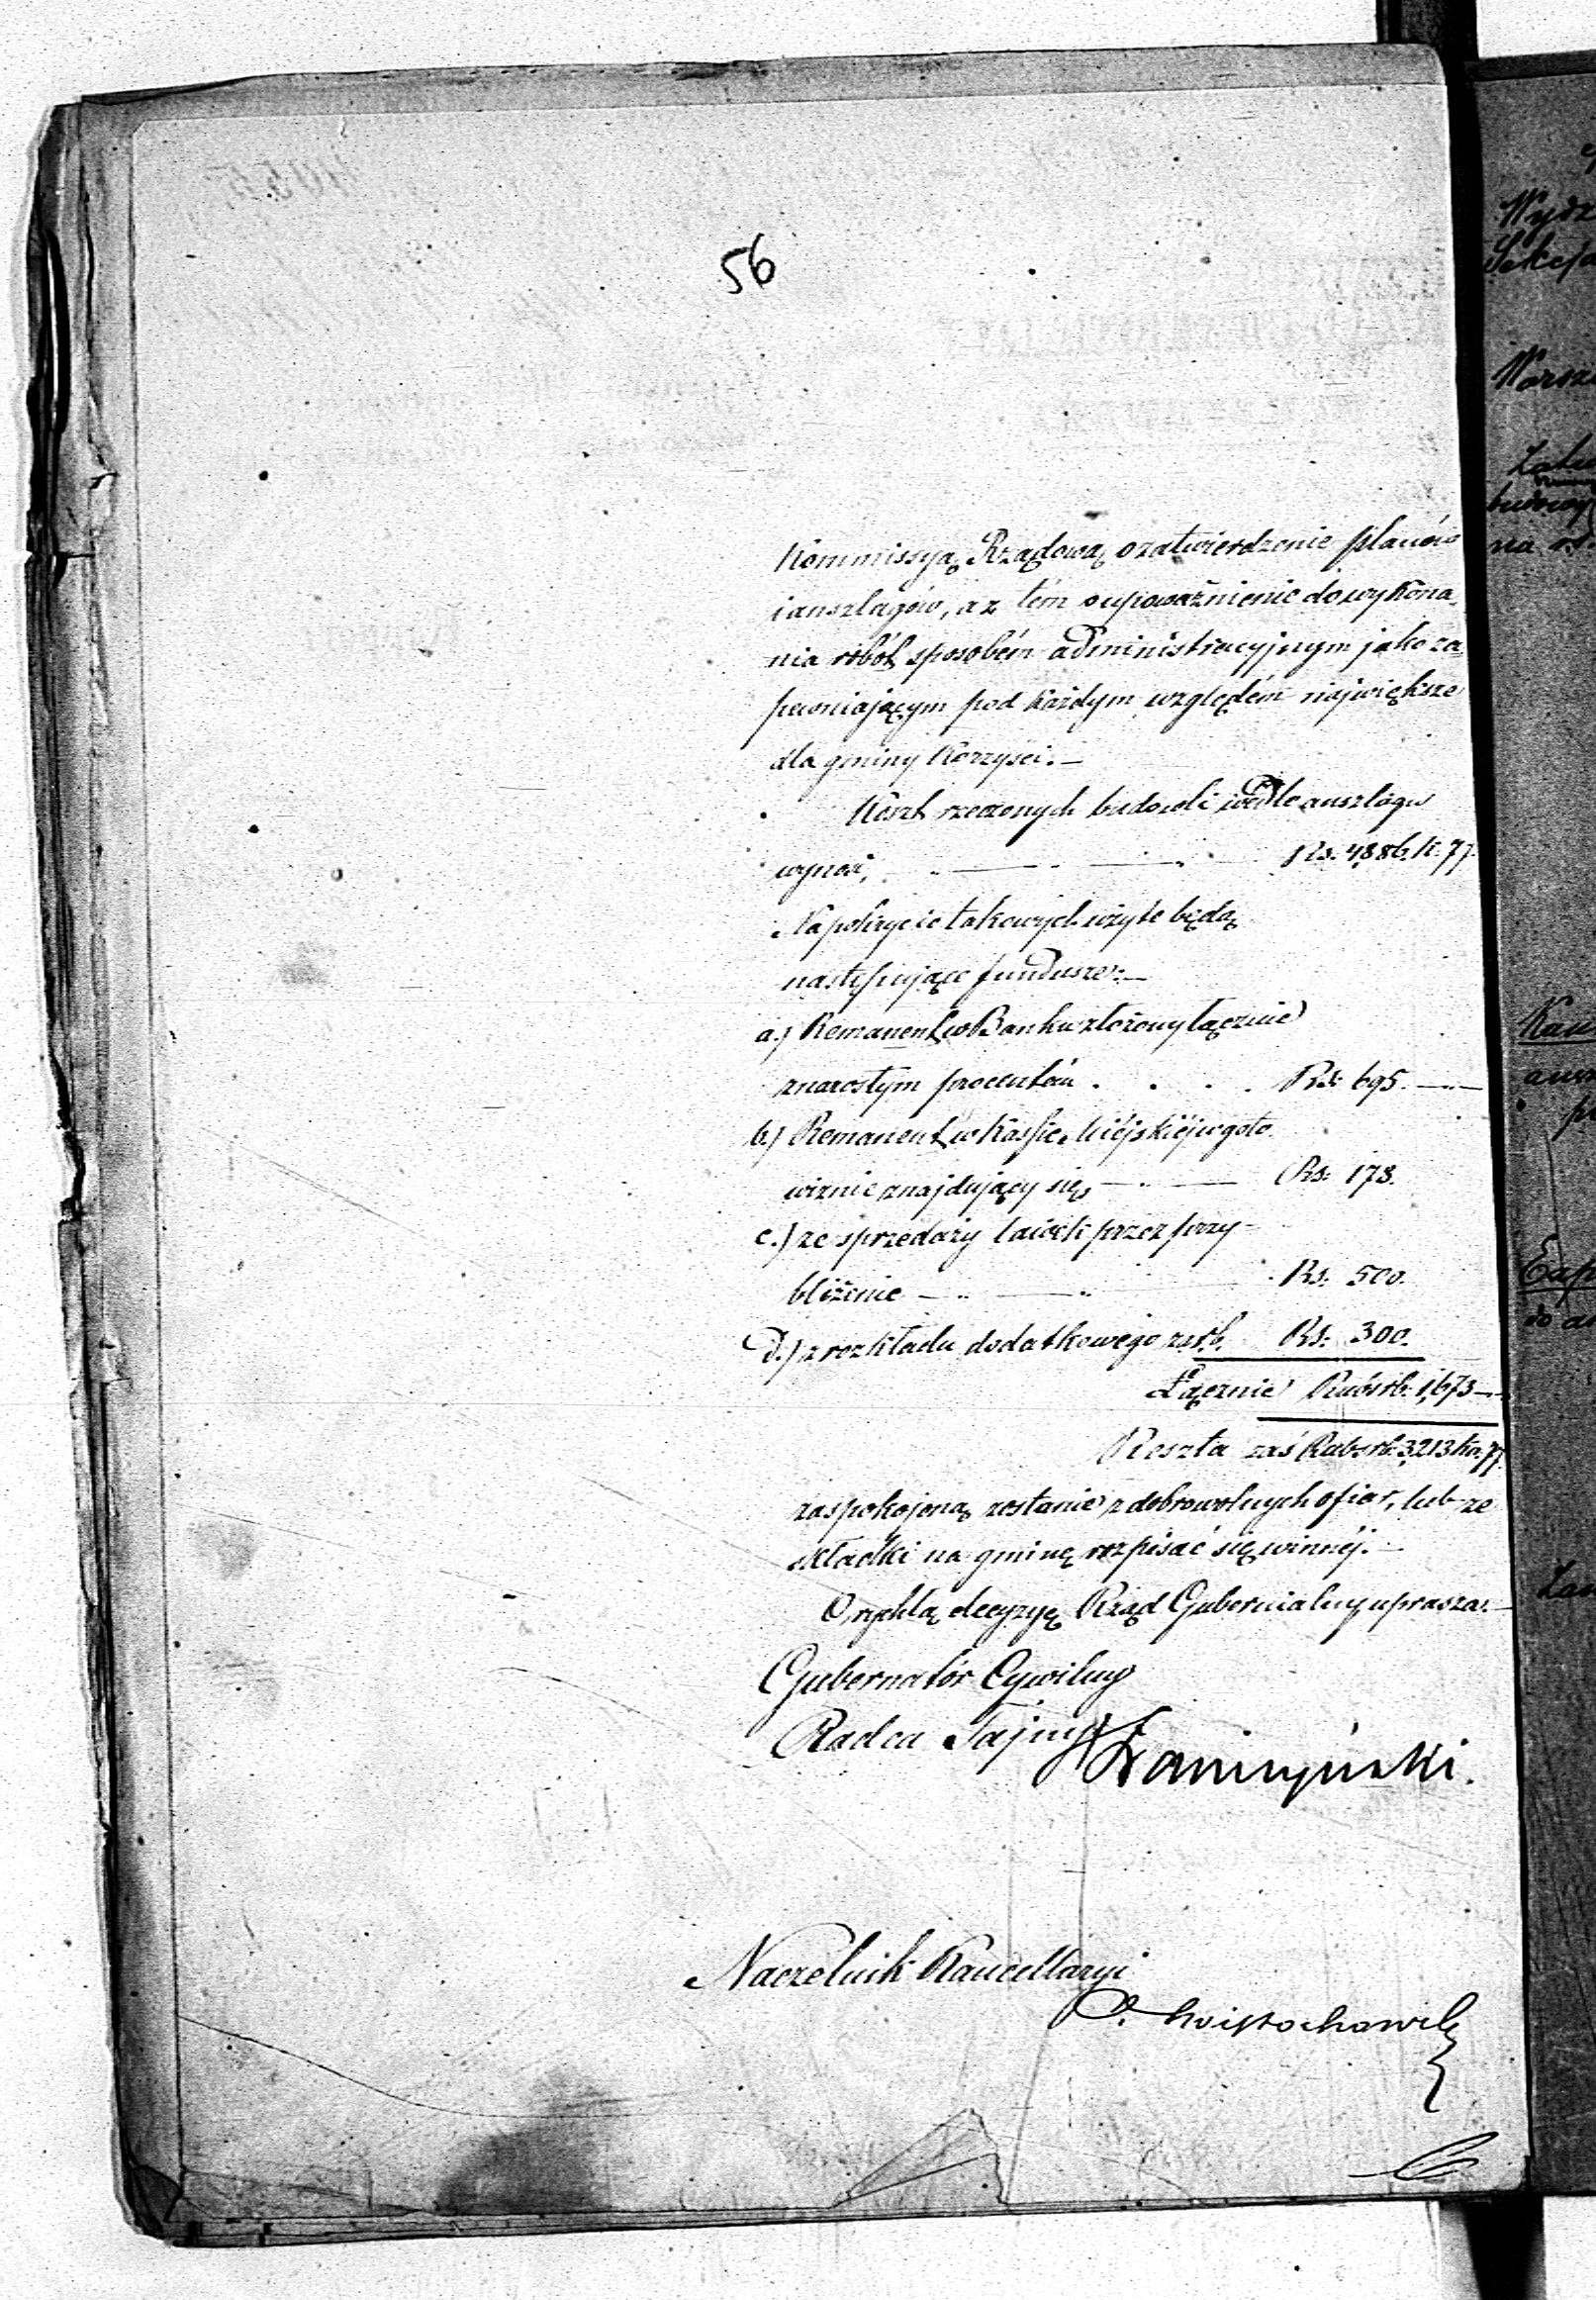 56
Kommissyą Rządową o zatwierdzenie planów
i anszlagów, a z tém o upoważnienie do wykona-
nia robót sposobém administracyjnym jako za-
pewniającym pod każdym względém największe
dla gminy korzyści. —
Koszt rzeczonych budowli wedle anszlagu
wynosi, Rs. 4,886. k. 77.
Na pokrycie takowych użyte będą
następujące fundusze: —
a.) Remanent w Banku złożony łącznie
z narosłym procentém . . . . Rs: 695. —
b.) Remanent w Kassie Miéjskiéj w goto
wiznie znajdujący się, — Rs: 178.
c.) ze sprzedaży ławek przez przy-
bliżenie — Rs: 500.
d.) z rozkładu dodatkowego rsrb. Rs: 300.
Łącznie Rubsrb. 1,673 —
Reszta zaś Rubsrb. 3,213 ko. 77.
zaspokojoną zostanie z dobrowolnych ofiar, lub ze
składki na gminę rozpisać się winnéj. —
O rychłą decyzyę Rząd Gubernialny uprasza. —
Gubernatór Cywilny
Radca Tajny
Naczelnik Kancellaryi
Wydz
Warsz
na